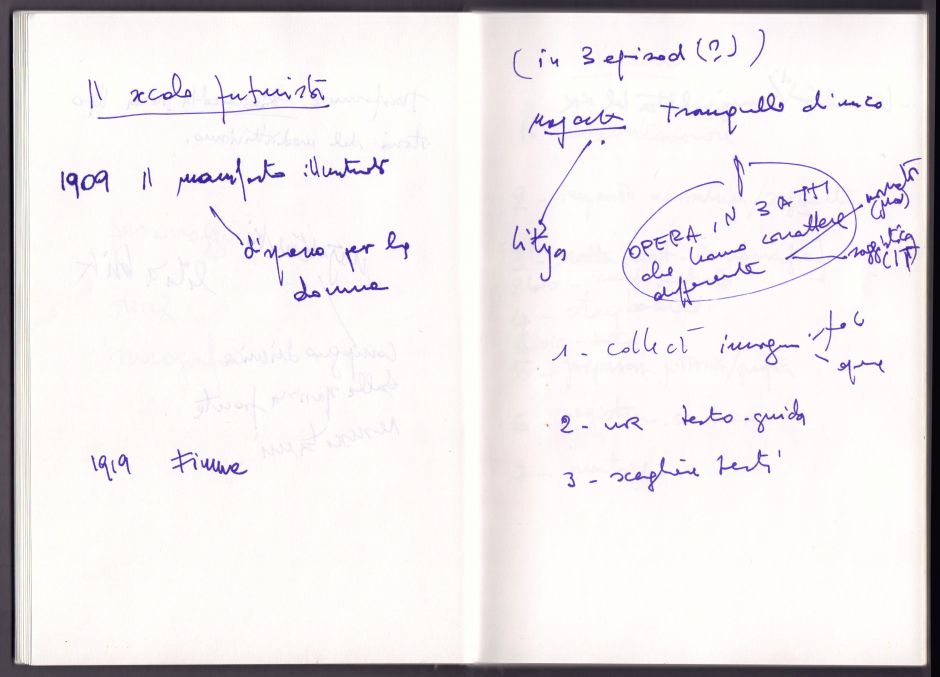 Il secolo futurista
1909 Il manifesto illustrato
disprezzo per la
donna
1919 Fiume
(in 3 episod (?))
tranquillo d'unco
litiga
OPERA IN 3 ATTI
che hanno carattere
differente
saggistica
(IT)
1 - collect imagin
2 - testo-guida
3 - scegliere testi